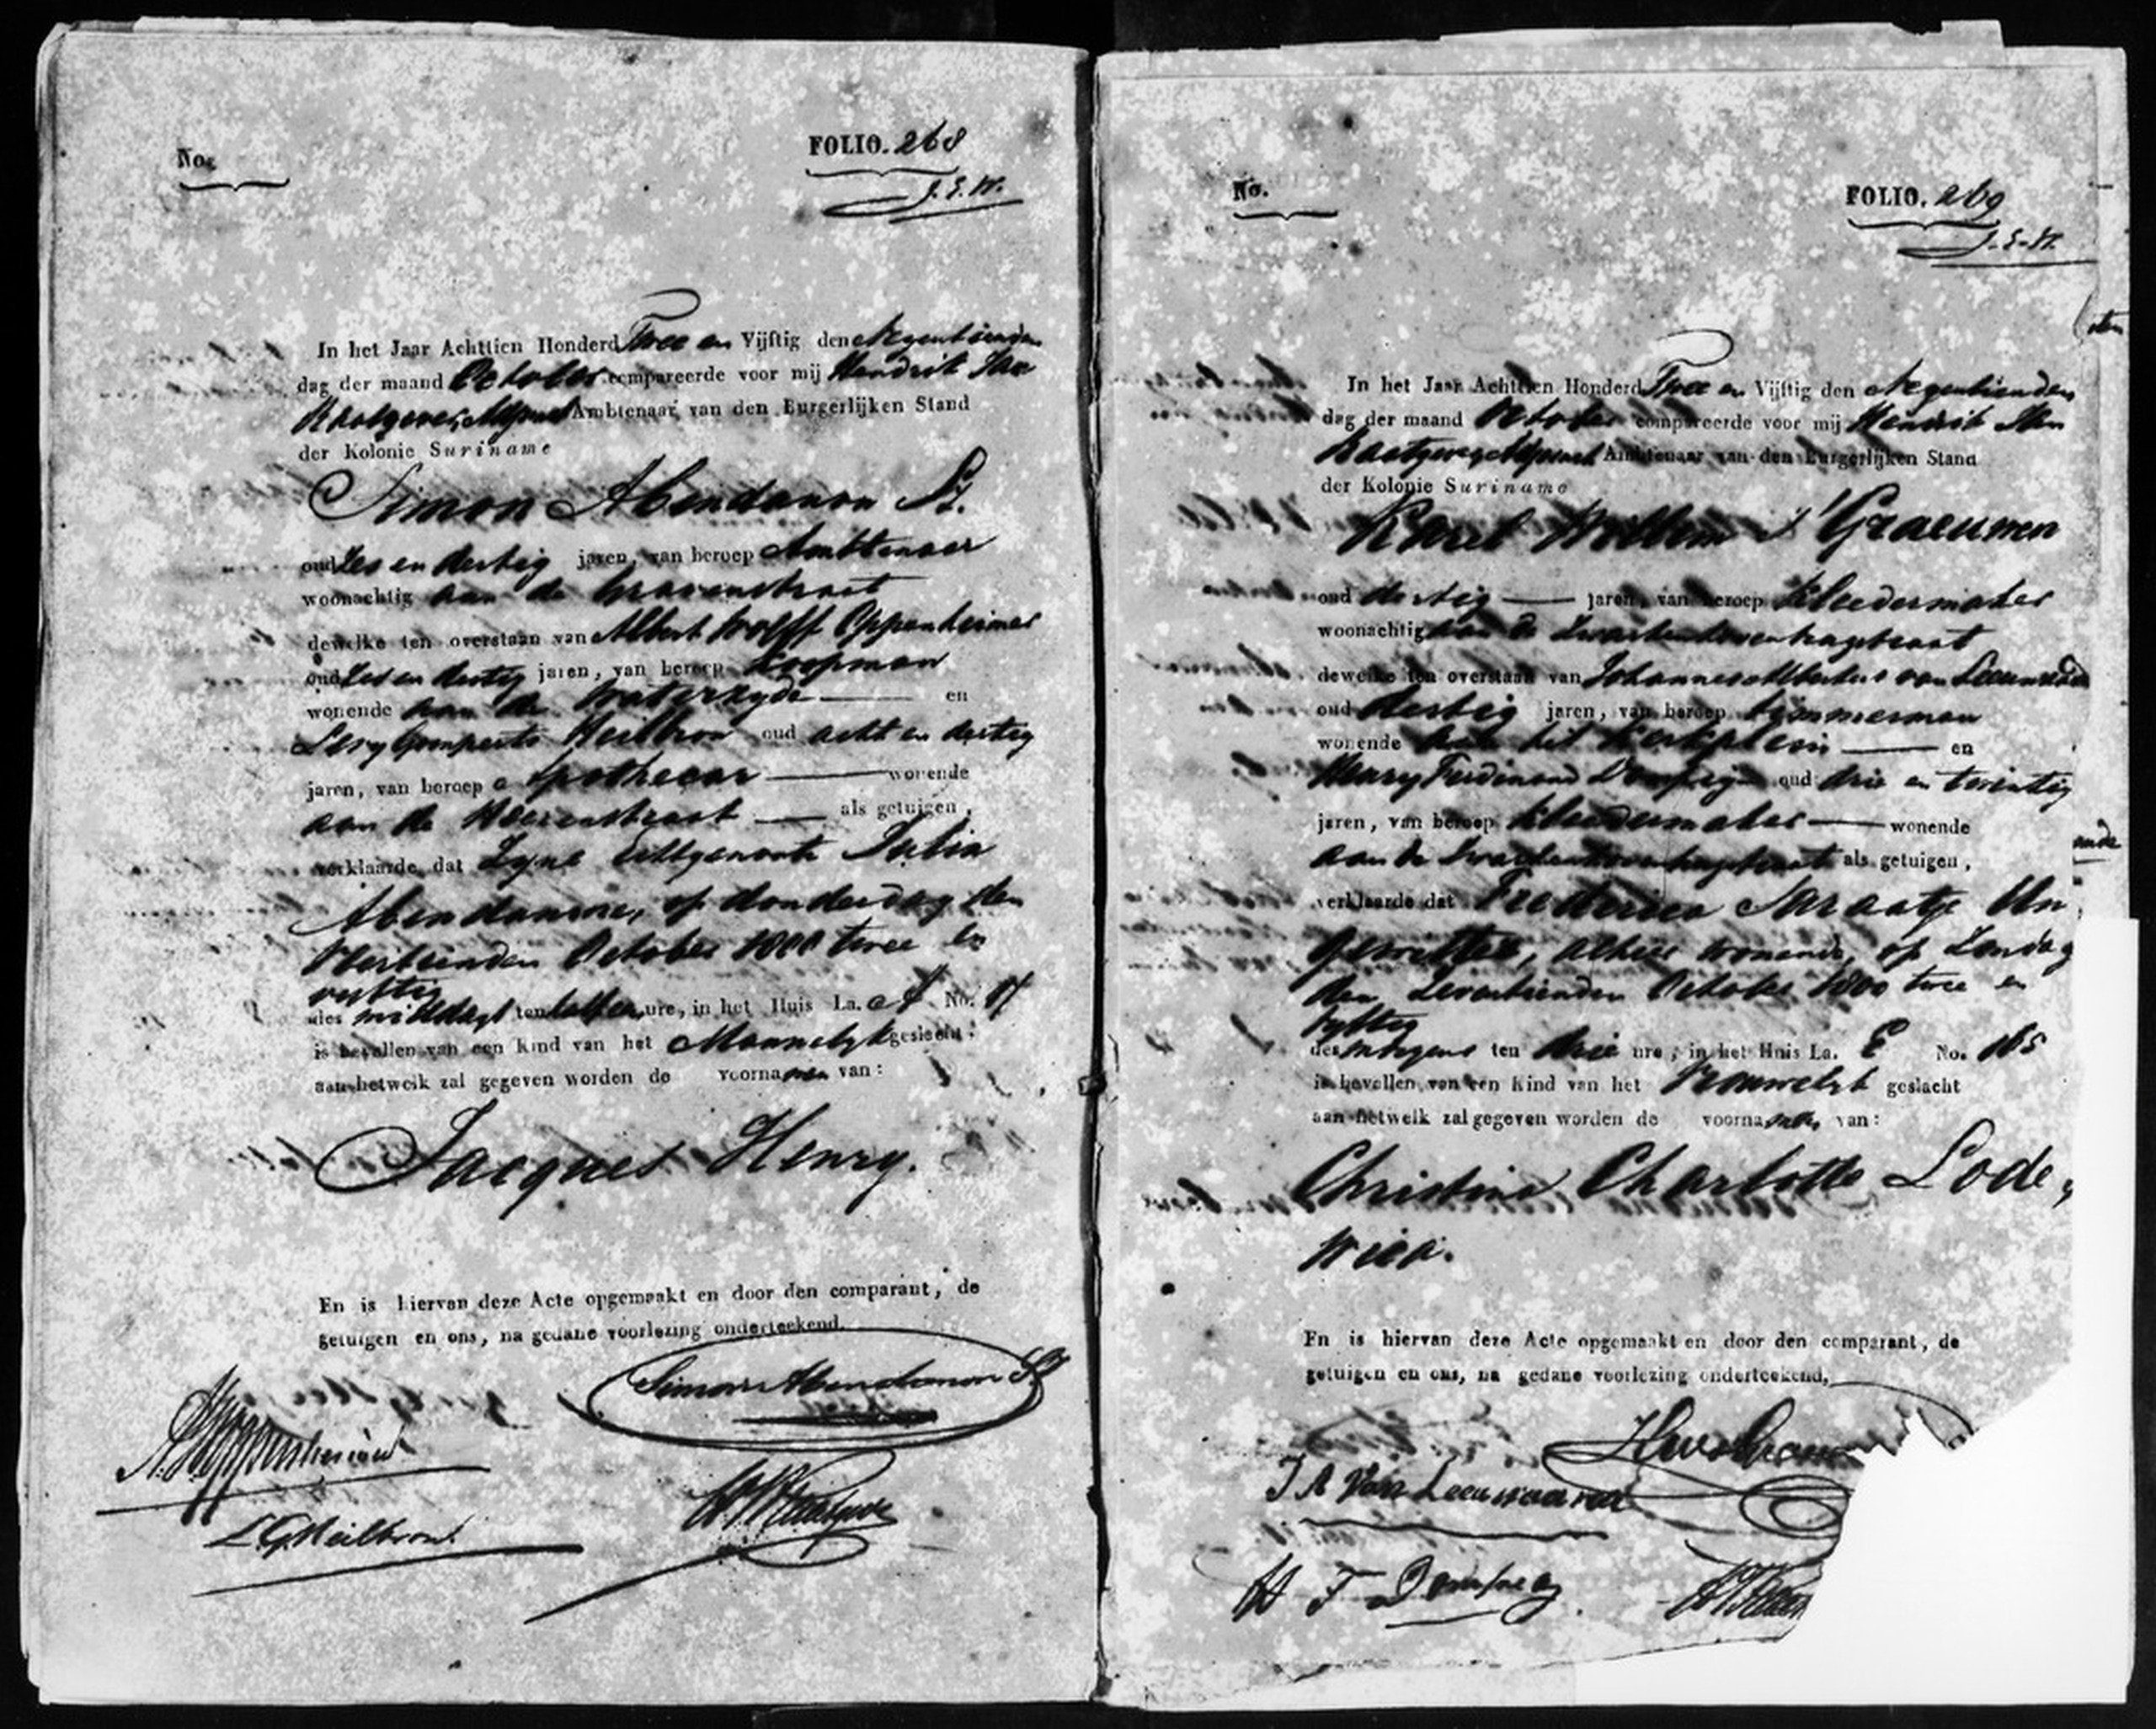 No.
FOLIO. 268
In het Jaar Achttien Honderd Twee en Vijftig den Negentienden
dag der maand October compareerde voor mij Hendrik
Ambtenaar van den Burgerlijken Stand
der Kolonie Suriname
Simon Abendanon Sz.
oud Zes en dertig jaren, van beroep Ambtenaar
woonachtig aan de Gravenstraat
dewelke ten overstaan van Albert Wolff Oppenheimer
oud Zes en dertig jaren, van beroep Koopman
wonende aan de Waterzyde en
Levy Gomperts Heilbron oud acht en dertig
jaren, van beroep Apothecar wonende
aan de Heerenstraat als getuigen,
verklaarde dat Zyne Echtgenoote Julia
Abendanone, op donderdag den
Veertienden October 1800 twee en
vyftig
des middags ten twaalf ure, in het Huis La. A No. 17
is bevallen van een kind van het Mannelyk geslacht:
aan hetwelk zal gegeven worden de voornamen van:
Jacques Henry.
En is hiervan deze Acte opgemaakt en door den comparant, de
getuigen en ons, na gedane voorlezing onderteekend.
Simon Abendanon Sz
A. W. Oppenheimer
L. G. Heilbron.
No.
FOLIO. 269
In het Jaar Achttien Honderd Twee en Vijftig den Negentienden
dag der maand October compareerde voor mij Hendrik
Ambtenaar van den Burgerlijken Stand
der Kolonie Suriname
Karel Willem
oud dertig jaren, van beroep Kleedermaker
woonachtig aan de Zwartenhovenbrugstraat
dewelke ten overstaan van Johannes Albertus van Leeuwaarden
oud dertig jaren, van beroep timmerman
wonende aan het Kerkplein en
Henry Ferdinand Dempsey oud drie en twintig
jaren, van beroep Kleedermaker wonende
aan de Zwartenhovenbrugstraat als getuigen,
verklaarde dat Frederica Saraatje
alhier wonende, op Zondag
den Zeventienden October 1800 twee en
vyftig
des morgens ten drie ure, in het Huis La. E No. 165
is bevallen van een kind van het Vrouwelyk geslacht
aan hetwelk zal gegeven worden de voornamen van:
Christina Charlotte Lode,
wica.
En is hiervan deze Acte opgemaakt en door den comparant, de
getuigen en ons, na gedane voorlezing onderteekend,
J A Van Leeuwaarden
H F Dempsey